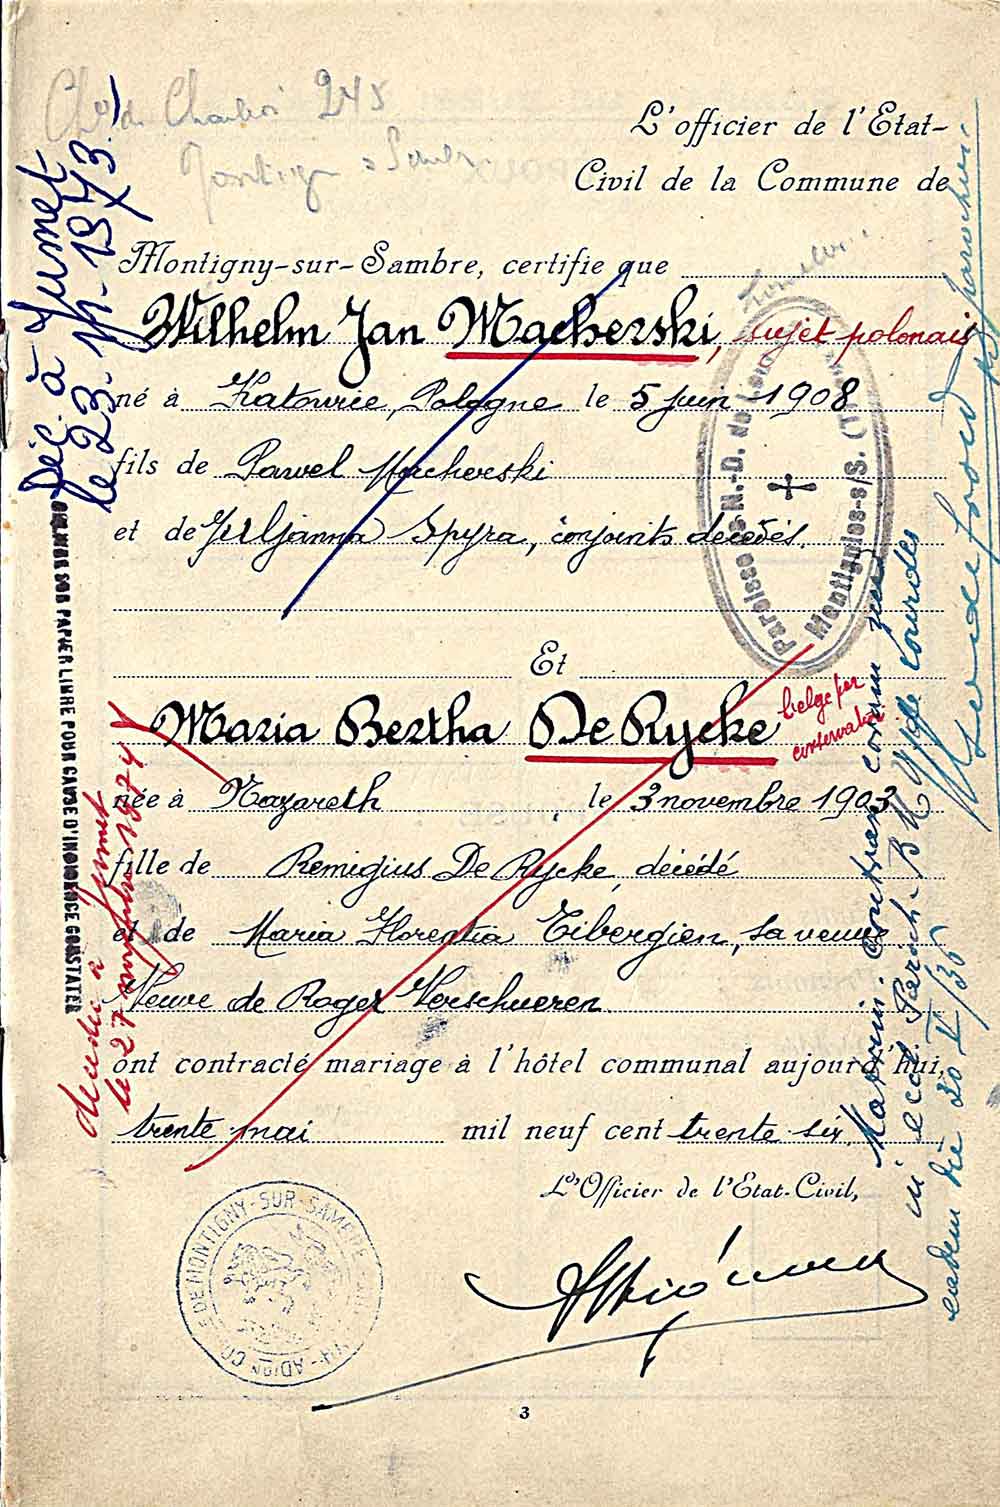 Chée de Charleroi 245
Montign s/Sambre
L'officier de l'Etat-
Civil de la Commune de
Montigny-sur-Sambre, certifie que
Wilhelm Jan Macherski, sujet polonais
né à Katowie, Pologne le 5 juin 1908
fils de Pawel Macherski
et de Juljanna Spyra, conjoints décédés.
Et
Maria Bertha De Rycke belge par
conservation
née à Nazareth le 3 novembre 1903
fille de Remigius De Rycke, décédé
et de Maria Florentia Tibergien, sa veuve
Veuve de Roger Verschueren.
ont contracté mariage à l'hôtel communal aujourd'hui,
trente mai mil neuf cent trente six.
L'Officier de l'Etat-Civil,
3
Déc. à Jumet
le 23.11.1973
DELIVRE SUR PAPIER LIBRE POUR CAUSE D'INDIGENCE CONSTATEE
décédée à Jumet
le 27 novembre 1974
Paroisse N.-D. de
Montignies-s/S.
Matrim. contrax. coram
in eccl. Paroch. B M V de Lourdes
eadem die 30 V/36
parochus
MONTIGNY-SUR-SAMBRE